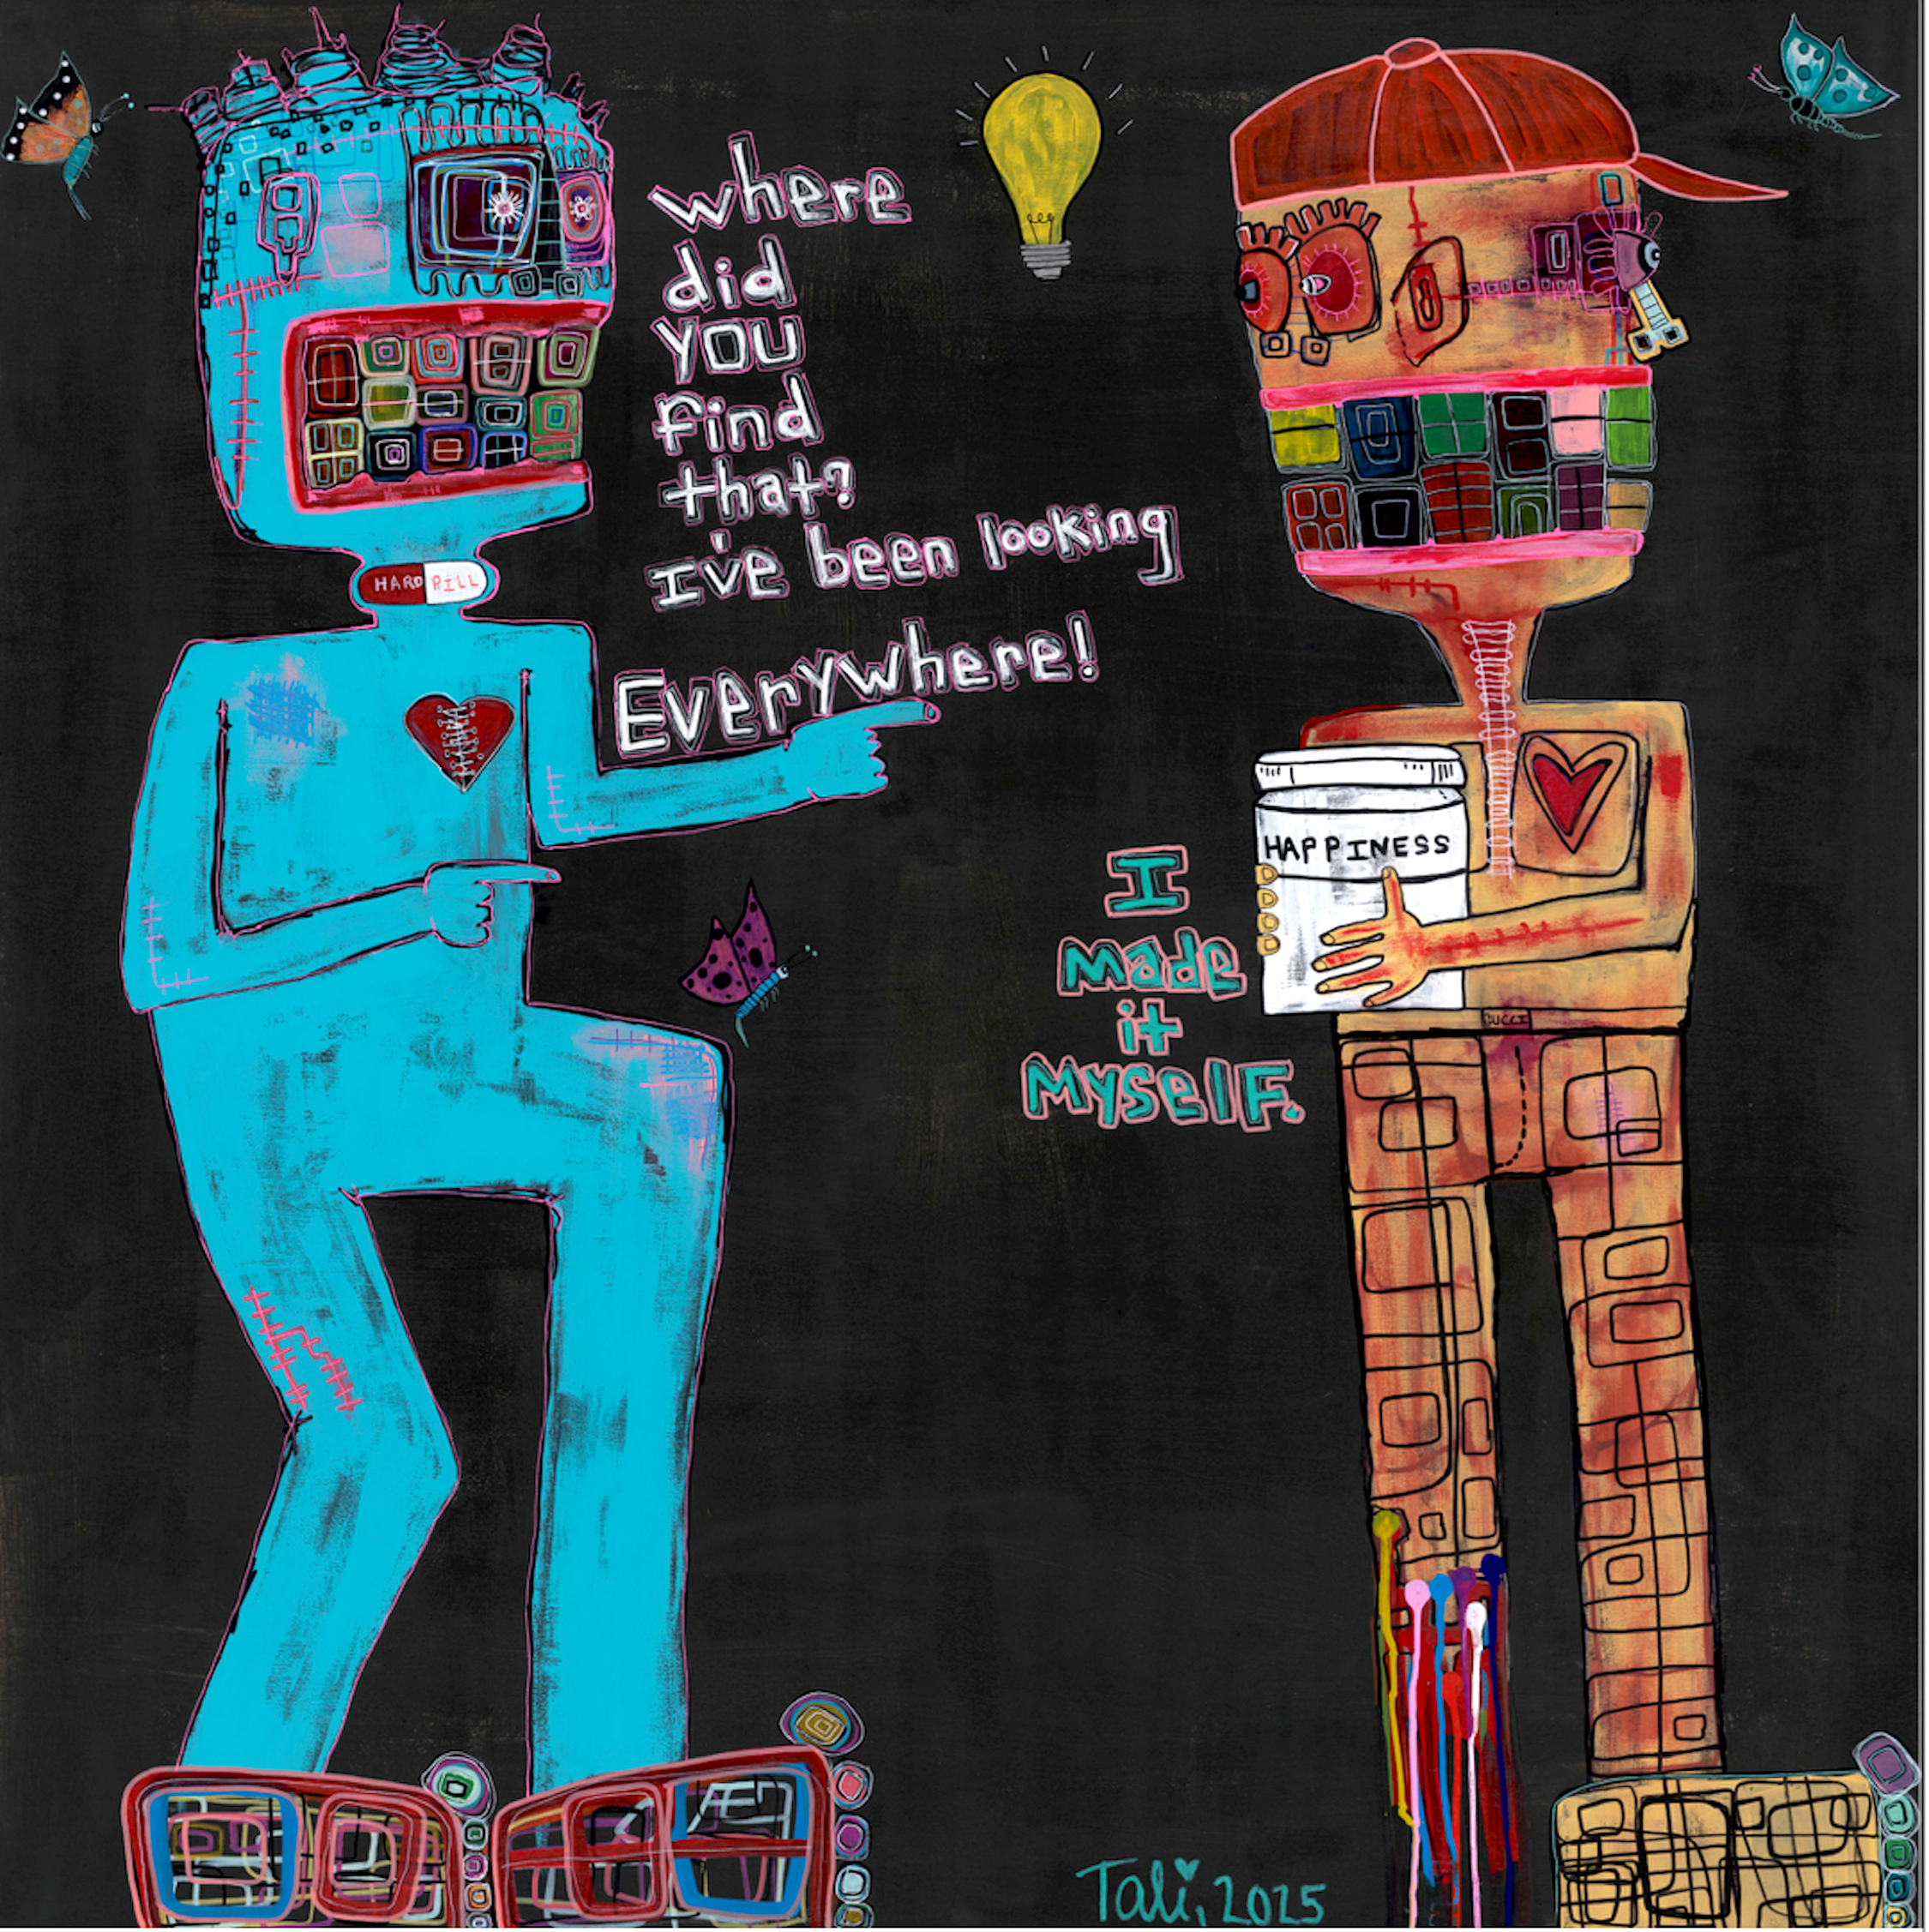 where
did
you
find
that?
I've been looking
Everywhere!
HARD PILL
HAPPINESS
I
made
it
Myself.
Tali, 2025